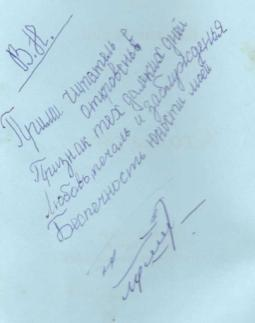 В.Н.
Прими читатель
откровенье
Признак тех далеких дней
Любовь, печаль и заблужденья
Беспечность юности моей